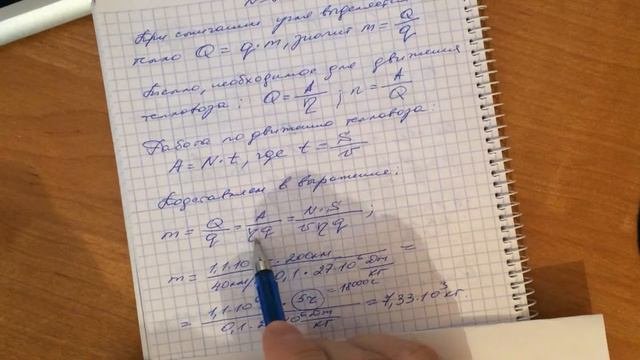 При сжигании угля выделяется
тепло Q = q·m, значит m = Q/q
Тепло, необходимое для движения
тепловоза: Q = A/η ; η = A/Q
Работа по движению тепловоза:
A = N·t, где t = S/v
Подставляем в выражение:
m = Q/q = A/ηq = N·S/vηq ;
m = 1,1·10 · 200км / 40км/ 0,1·27·10⁶ Дж/кг =
= 1,1·10 · 5ч = 18000с / 0,1·2 10⁶ Дж/кг = 7,33·10³ кг.